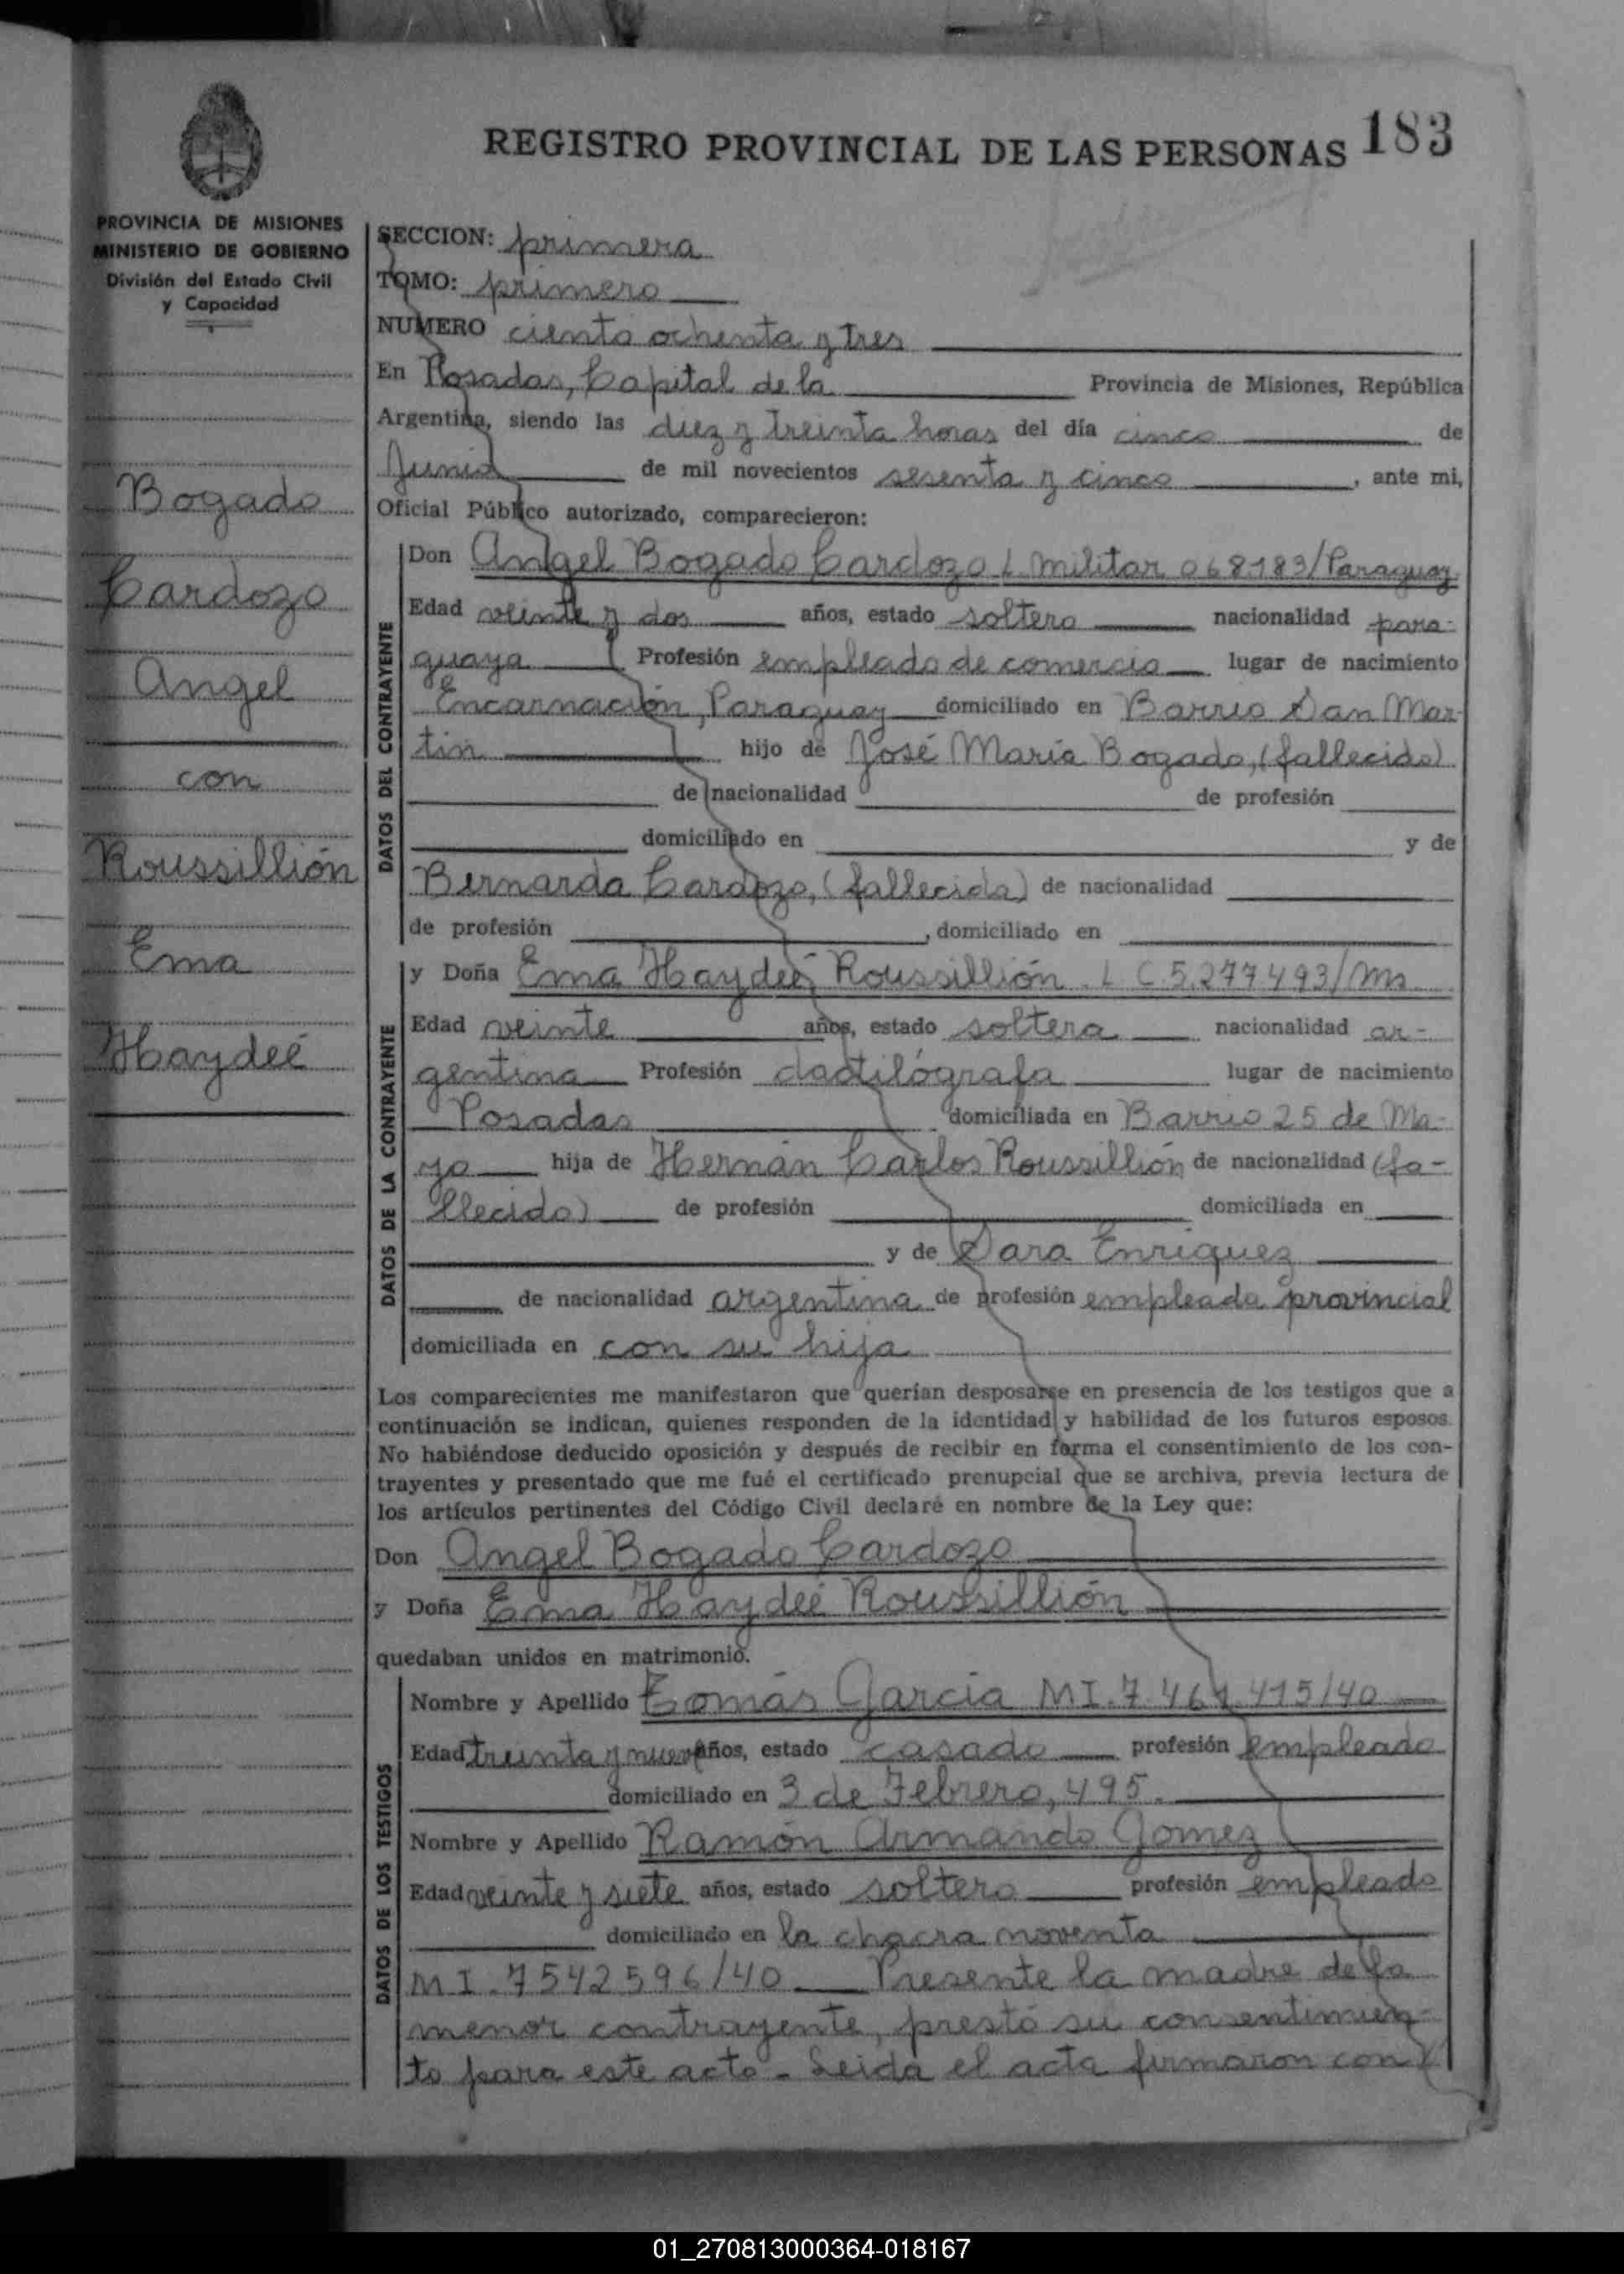 REGISTRO PROVINCIAL DE LAS PERSONAS 183
PROVINCIA DE MISIONES
MINISTERIO DE GOBIERNO
División del Estado Civil
y Capacidad
Bogado
Cardozo
Angel
con
Roussillión
Ema
Haydeé
SECCION: primera
TOMO: primero
NUMERO ciento ochenta y tres
En Posadas, Capital de la Provincia de Misiones, República
Argentina, siendo las diez y treinta horas del día cinco de
Junio de mil novecientos sesenta y cinco, ante mi,
Oficial Público autorizado, comparecieron:
DATOS DEL CONTRAYENTE
Don Angel Bogado Cardozo L. militar 068183/Paraguay
Edad veinte y dos años, estado soltero nacionalidad para-
guaya Profesión empleado de comercio lugar de nacimiento
Encarnación, Paraguay domiciliado en Barrio San Mar-
tin hijo de José María Bogado, (fallecido)
de nacionalidad de profesión
domiciliado en y de
Bernarda Cardozo, (fallecida) de nacionalidad
de profesión , domiciliado en
DATOS DE LA CONTRAYENTE
y Doña Ema Haydeé Roussillión. L C 5.277.493/Ms
Edad veinte años, estado soltera nacionalidad ar-
gentina Profesión dactilógrafa lugar de nacimiento
Posadas domiciliada en Barrio 25 de Ma-
yo hija de Hernán Carlos Roussillión de nacionalidad (fa-
llecido) de profesión domiciliada en
y de Sara Enriquez
de nacionalidad argentina de profesión empleada provincial
domiciliada en con su hija
Los comparecientes me manifestaron que querían desposarse en presencia de los testigos que a
continuación se indican, quienes responden de la identidad y habilidad de los futuros esposos.
No habiéndose deducido oposición y después de recibir en forma el consentimiento de los con-
trayentes y presentado que me fué el certificado prenupcial que se archiva, previa lectura de
los artículos pertinentes del Código Civil declaré en nombre de la Ley que:
Don Angel Bogado Cardozo
y Doña Ema Haydeé Roussillión
quedaban unidos en matrimonio.
DATOS DE LOS TESTIGOS
Nombre y Apellido Tomás Garcia MI. 7.461.415/40
Edad treinta y nueve años, estado casado profesión empleado
domiciliado en 3 de Febrero, 495.
Nombre y Apellido Ramón Armando Gomez
Edad veinte y siete años, estado soltero profesión empleado
domiciliado en la chacra noventa
MI. 7542596/40 Presente la madre de la
menor contrayente, prestó su consentimien-
to para este acto - Leida el acta firmaron con
01_270813000364-018167